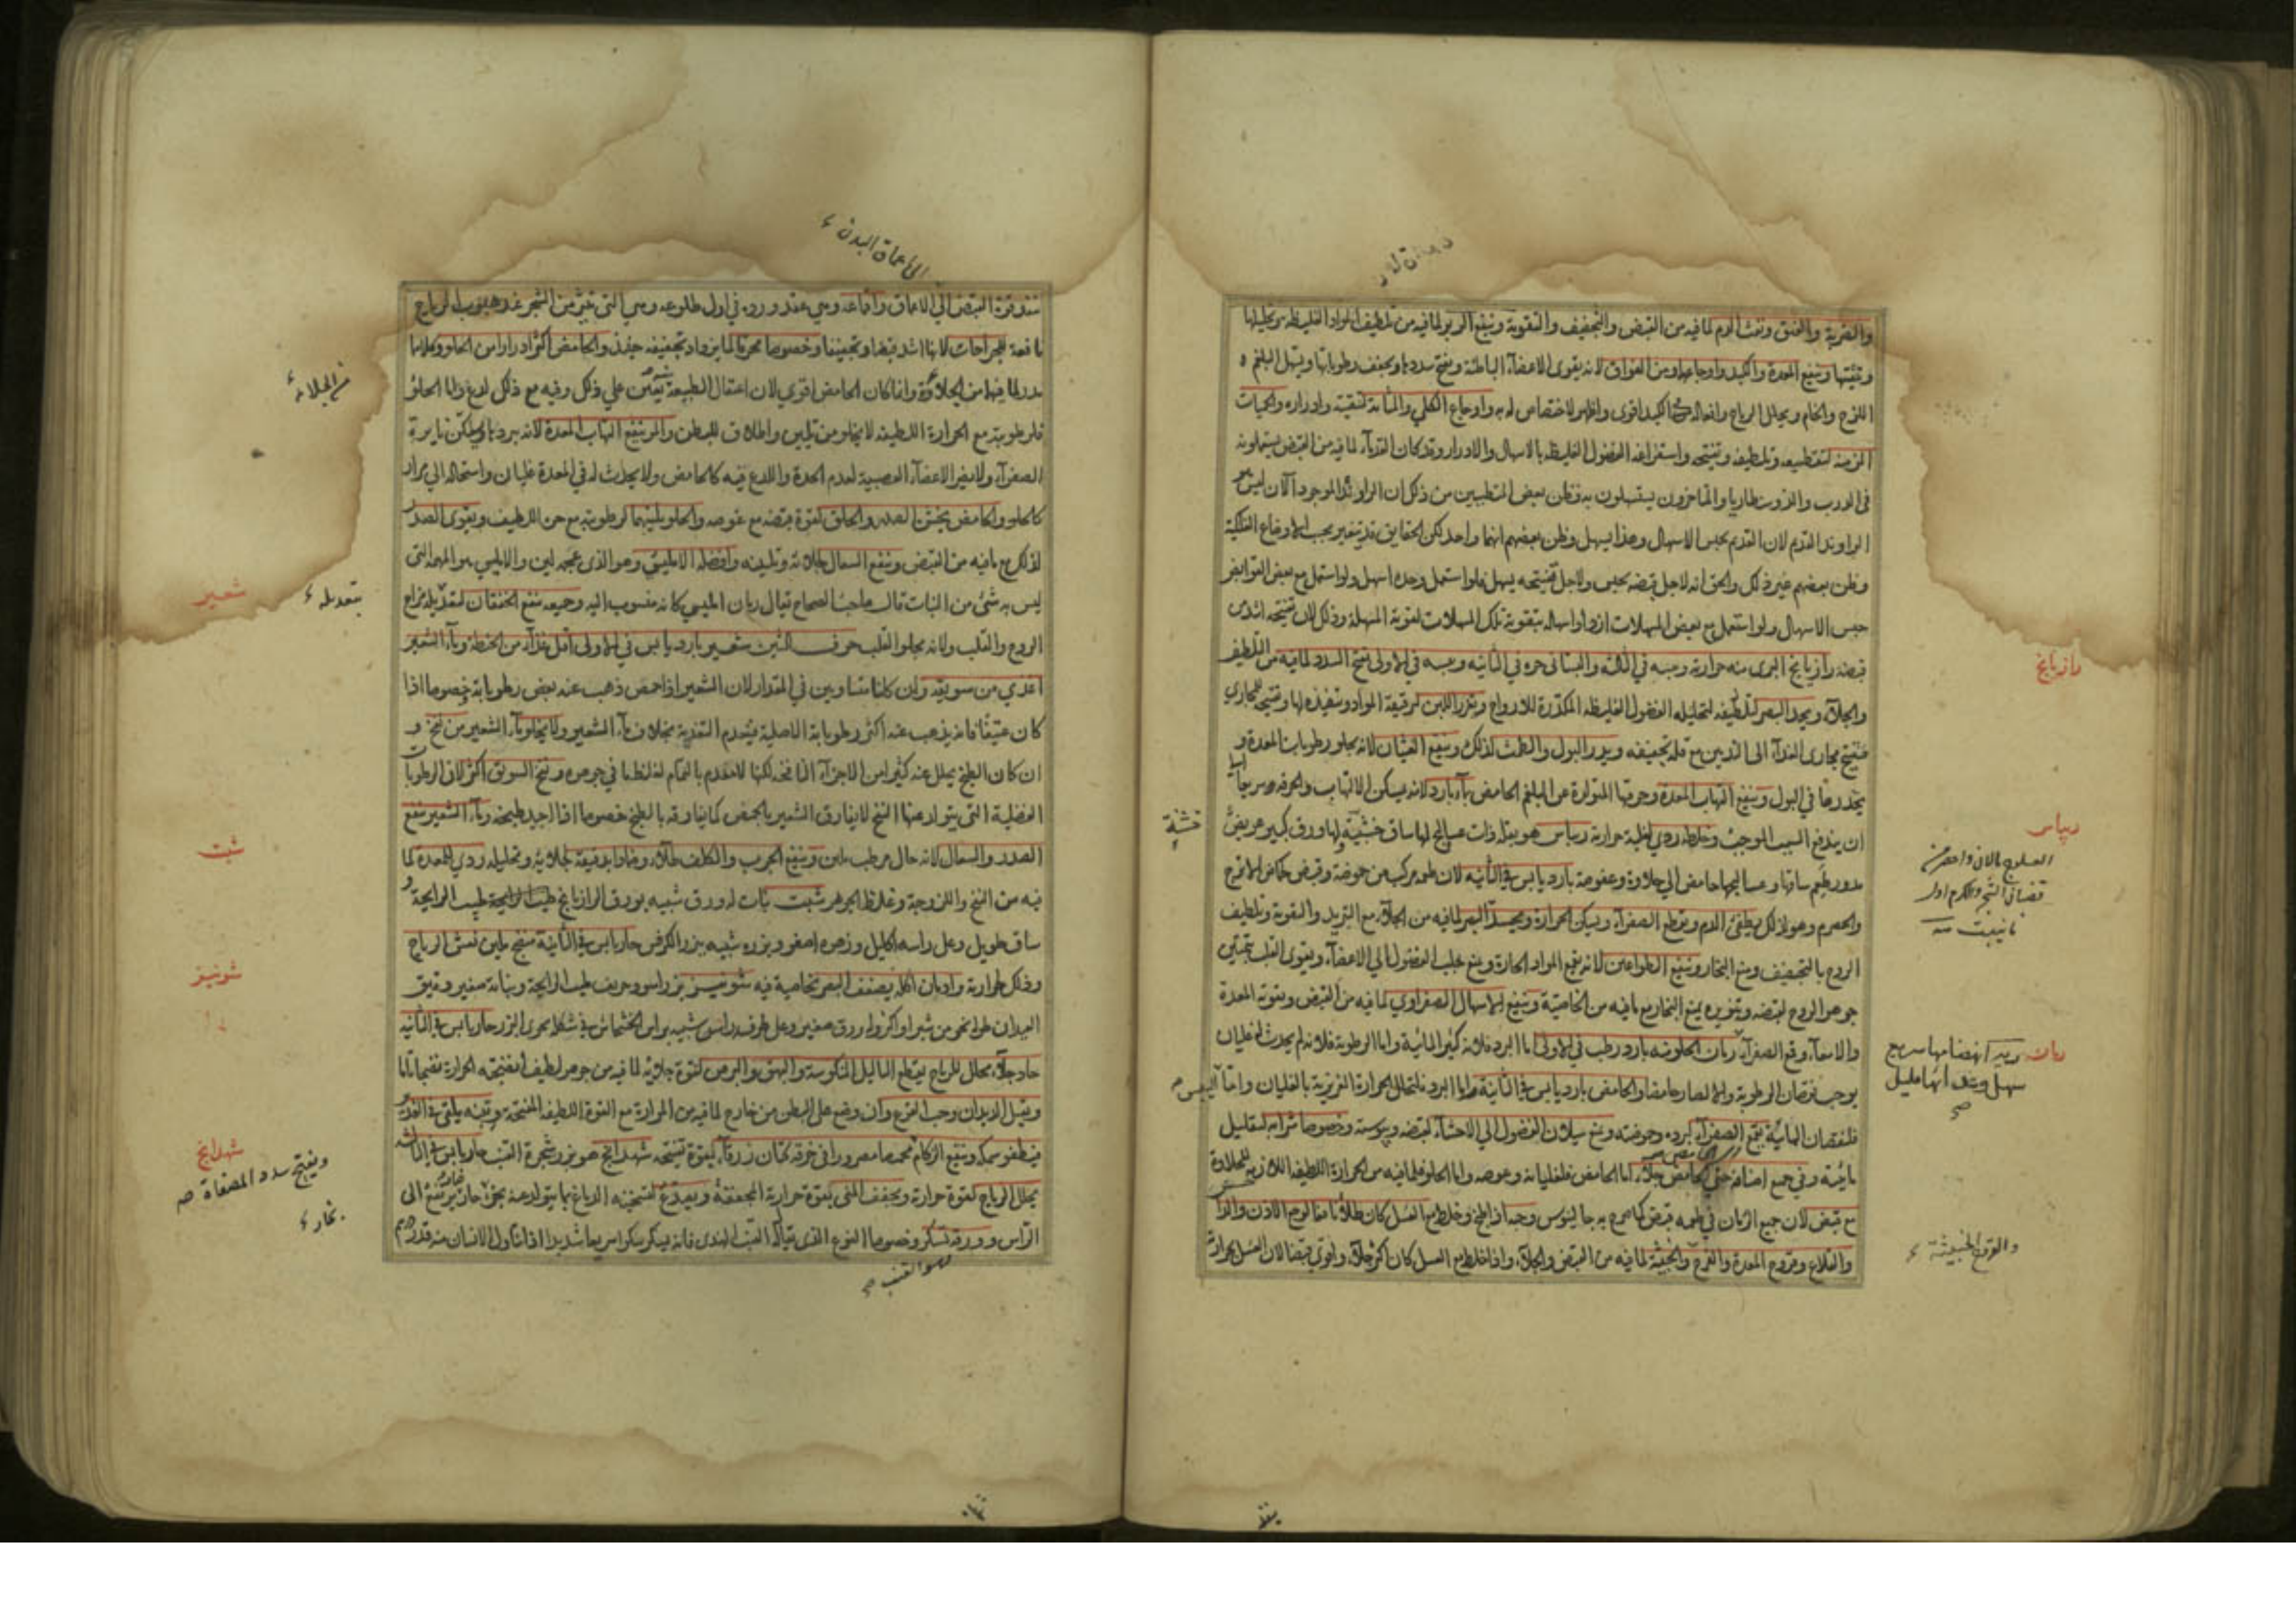 والضربة والفتق ونفث الدم لما فيه من القبض والتجفيف والتقوية وينفع الربو لما فيه من تلطيف المواد الغليظة وتحليلها
وتنقيتها وينفع المعدة والكبد واوجاعها ومن الفواق لانه يقوى الاعضآء الباطنة ويفتح سددها ويجفف رطوباتها ويسهل البلغم
اللزج والخام ويحلل الرياح وافعاله في الكبد اقوى واظهر لاختصاص له به واوجاع الكلى والمثانة لتنقيته وادراره والحميات
المزمنة لتقطيعه وتلطيفه وتفتيحه واستفراغه الفضول الغليظة بالاسهال والادرار وقد كان القدمآء لما فيه من القبض يستعملونه
فى الذرب والدوسنطاريا والمتاخرون يستسهلون به فظن بعض المتطببين من ذلك ان الراوند الموجود الآن ليس هو
الراوند القديم لان القديم يحبس الاسهال وهذا يسهل وظن بعضهم انهما واحد لكن الحقايق قد يتغير بحسب الاوضاع الفلكية
وظن بعضهم غير ذلك والحق انه لاجل قبضه يحبس ولاجل تفتيحه يسهل فلو استعمل وحده اسهل ولو استعمل مع بعض القوابض
حبس الاسهال ولو استعمل مع بعض المسهلات ازداد اسهاله بتقويته تلك المسهلات لقوته المسهلة وذلك لان تفتيحه اشد من
قبضه رازيانج البرى منه حرارته ويبسه في الثالثة والبستانى حره في الثانية ويبسه في الاولى يفتح السدد لما فيه من التلطيف
والجلآء ويحد البصر لتلطيفه لتحليله الفضول الغليظة المكدرة للارواح ويغزر اللبن لترقيقه المواد وتنفيذه لها وتفتيحه المجاري
فيفتح مجارى الغذآء الى الثديين مع قلة تجفيفه ويدر البول والطمث لذلك وينفع الغثيان لانه يجلو رطوبات المعدة و
يحدرها في البول وينفع التهاب المعدة وحرقتها المتولدة عن البلغم الحامض بمآء بارد لانه يسكن الالتهاب والحرقة سريعا الى
ان يندفع السبب الموجب وخلطه ردي لغلبة حرارته ريباس هو بقلة ذات عساليج لها ساق خشنة ولها ورق كبير عريض
مدور طعم ساقها وعساليجها حامض الى حلاوة وعفوصة بارد يابس في الثانية لان طعمه مركب من حموضة وقبض كحماض الاترج
والحصرم وهو لذلك يطفئ الدم ويقطع الصفرآء ويسكن الحرارة ويحد البصر لما فيه من الجلآء مع التبريد والتقوية وتلطيف
الروح بالتجفيف ومنع البخار وينفع الطواعين لانه يقمع المواد الحارة ويمنع جلب الفضول الى الاعضآء ويقوى القلب بتمتين
جوهر الروح لقبضه وتنويره بمنع البخار مع ما فيه من الخاصية وينفع الاسهال الصفراوي لما فيه من القبض وتقوية المعدة
والامعآء وقمع الصفرآء رمان الحلو منه بارد رطب في الاولى اما البرد فلانه كثير المائية واما الرطوبة فلانه لم يحدث له غليان
يوجب نقصان الرطوبة والا لصار حامضا والحامض بارد يابس في الثانية اما البرد فلتحلل الحرارة الغريزية بالغليان واما اليبس
فلنقصان المائية يقمع الصفرآء لبرده وحموضته ويمنع سيلان الفضول الى الاحشآء لقبضه ويبوسته وخصوصا شرابه لتقليل
مائيته وفي جميع اصنافه حتى الحامض جلآء اما الحامض فلغليانه وغوصه واما الحلو فلما فيه من الحرارة اللطيفة اللازمة للحلاوة
مع قبض لان جميع الرمان في طعمه قبض كما صرح به جالينوس وحبه اذا طبخ وخلط مع العسل كان طلآء نافعا لوجع الاذن والداحس
والقلاع وقروح المعدة والقروح الخبيثة لما فيه من القبض والجلآء واذا خلط مع العسل كان اكثر جلآء واقوى قبضا لان العسل بحرارته
رازيانج
ريباس
رمان
سريع
والقروح الخبيثة
خشنة
ينفذ قوة القبض الى الاعماق واقماعه وهي عقد ورده في اول طلوعه وهي التى تنثر من الشجر عند هبوب الرياح
نافعة للجراحات لانها اشد قبضا وتجفيفا وخصوصا محرقا لما يزداد تجفيفه حينئذ والحامض اكثر ادرارا من الحلو وكلاهما
يدر لما فيهما من الجلآء وانما كان الحامض اقوى لان اعتقال الطبيعة يعين على ذلك وفيه مع ذلك لذع واما الحلو
فلرطوبته مع الحرارة اللطيفة لا يخلو من تليين واطلاق للبطن والمز ينفع التهاب المعدة لانه يبردها ويسكن نايرة
الصفرآء ولا يضر الاعضآء العصبية لعدم الحدة واللذع فيه كالحامض ولا يحدث له في المعدة غليان واستحالة الى مرار
كالحلو والحامض يخشن الصدر والحلق لقوة قبضه مع غوصه والحلو يلينهما لرطوبته مع حره اللطيف ويقوى الصدر
لذلك مع ما فيه من القبض وينفع السعال بجلائه وتليينه وافضله الامليسى وهو الذى عجمه لين والامليس هو المهمه التى
ليس به شئ من النبات قال صاحب الصحاح يقال رمان امليسى كانه منسوب اليه وجميعه ينفع الخفقان لتعديله مزاج
الروح والقلب ولانه يجلو القلب حرف الشين شعير بارد يابس في الاولى اقل غذآء من الحنطة ومآء الشعير
اغذى من سويقه وان كانا متساويين في المقدار لان الشعير اذا حمص ذهب عنه بعض رطوباته خصوصا اذا
كان عتيقا فانه يذهب عنه اكثر رطوباته الاصلية فيعدم التغذية بخلاف مآء الشعير ولا يخلو مآء الشعير من نفخ و
ان كان الطبخ يحلل عنه كثيرا من الاجزآء النافخة لكنها لا تنعدم بالتمام لغلظها في جوهره ونفخ السويق اكثر لان الرطوبات
الفضلية التى يتولد عنها النفخ لا يفارق الشعير بالحمص كما يفارقه بالطبخ خصوصا اذا اجيد طبخه ومآء الشعير ينفع
الصدر والسعال لانه جال مرطب ملين وينفع الجرب والكلف طلآء وضمادا بدقيقه لجلائه وتحليله ردي للمعدة لما
فيه من النفخ واللزوجة وغلظ الجوهر شبت نبات له ورق شبيه بورق الرازيانج طيب الرايحة و
ساق طويل وعلى راسه اكليل وزهره اصفر وبزره شبيه ببزر الكرفس حار يابس في الثانية منضج ملين نفش الرياح
وذلك لحرارته وادمان اكله يضعف البصر بخاصية فيه شونيز بزر اسود حريف طيب الرايحة ونباته صغير دقيق
العيدان طوله نحو من شبر او اكثر وله ورق صغير وعلى طرفه راس شبيه براس الخشخاش في شكله يحوى البزر حار يابس في الثانية
حاد جلآء محلل للرياح يقطع الثآليل المنكوسة والبهق والبرص لقوة جلائه لما فيه من جوهر لطيف انضجته الحرارة نضجا تاما
ويقتل الديدان وحب القرع وان وضع على البطن من خارج لما فيه من المرارة مع القوة اللطيفة المفتحة
فيطفو سمكه وينفع الزكام محمصا مصرورا في خرقة كتان زرقآء لقوة تفتيحه شهدانج هو بزر شجرة القنب حار يابس في الثالثة
يحلل الرياح لقوة حرارته ويجفف المنى بقوة حرارته المجففة ويصدع لتسخينه الدماغ بما يتولد عنه بخار حار يرتفع الى
الراس وورقه تسكر وخصوصا النوع الذى يقال له القنب الهندى فانه يسكر سكرا سريعا شديدا اذا تناول الانسان منه قدر درهم
الى اعماق البدن
شعير
بتعديله
شبت
شونيز
شهدانج
ويفتح سدد المصفاة
بخار